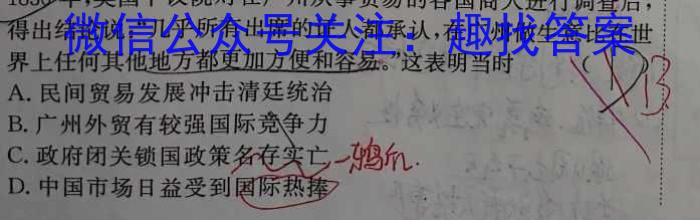 1830年,英国下议院对在广州从事贸易的各国商人进行调查后,
得出结论说:"几乎所有出席的证人都承认,在广州做生意比在世
微信公众号关注:趣找答案
界上任何其他地方都更加方便和容易。"这表明当时
A. 民间贸易发展冲击清廷统治
B. 广州外贸有较强国际竞争力
C. 政府闭关锁国政策名存实亡
D. 中国市场日益受到国际热捧
B